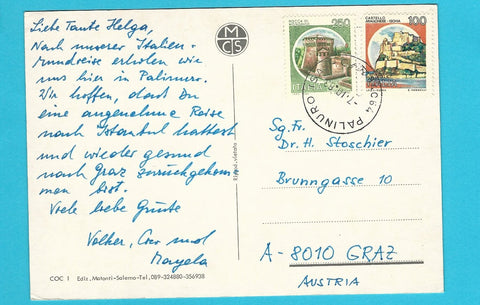 Liebe Tante Helga,
Nach unserer Italien-
Rundreise erholen wir
uns hier in Palinuro.
Wir hoffen, dass Du
eine angenehme Reise
nach Istanbul hattest
und wieder gesund
nach Graz zurückgekom
men bist.
Viele liebe Grüße
Volker, und
Manuela
COC 1 Ediz. Matonti-Salerno-Tel. 089-324880-356938
Riprod. vietata
MCS
250
CASTELLO
ARAGONESE - ISCHIA
100
PALINURO
Sg. Fr.
Dr. H. Stoschier
Brunngasse 10
A-8010 GRAZ
AUSTRIA